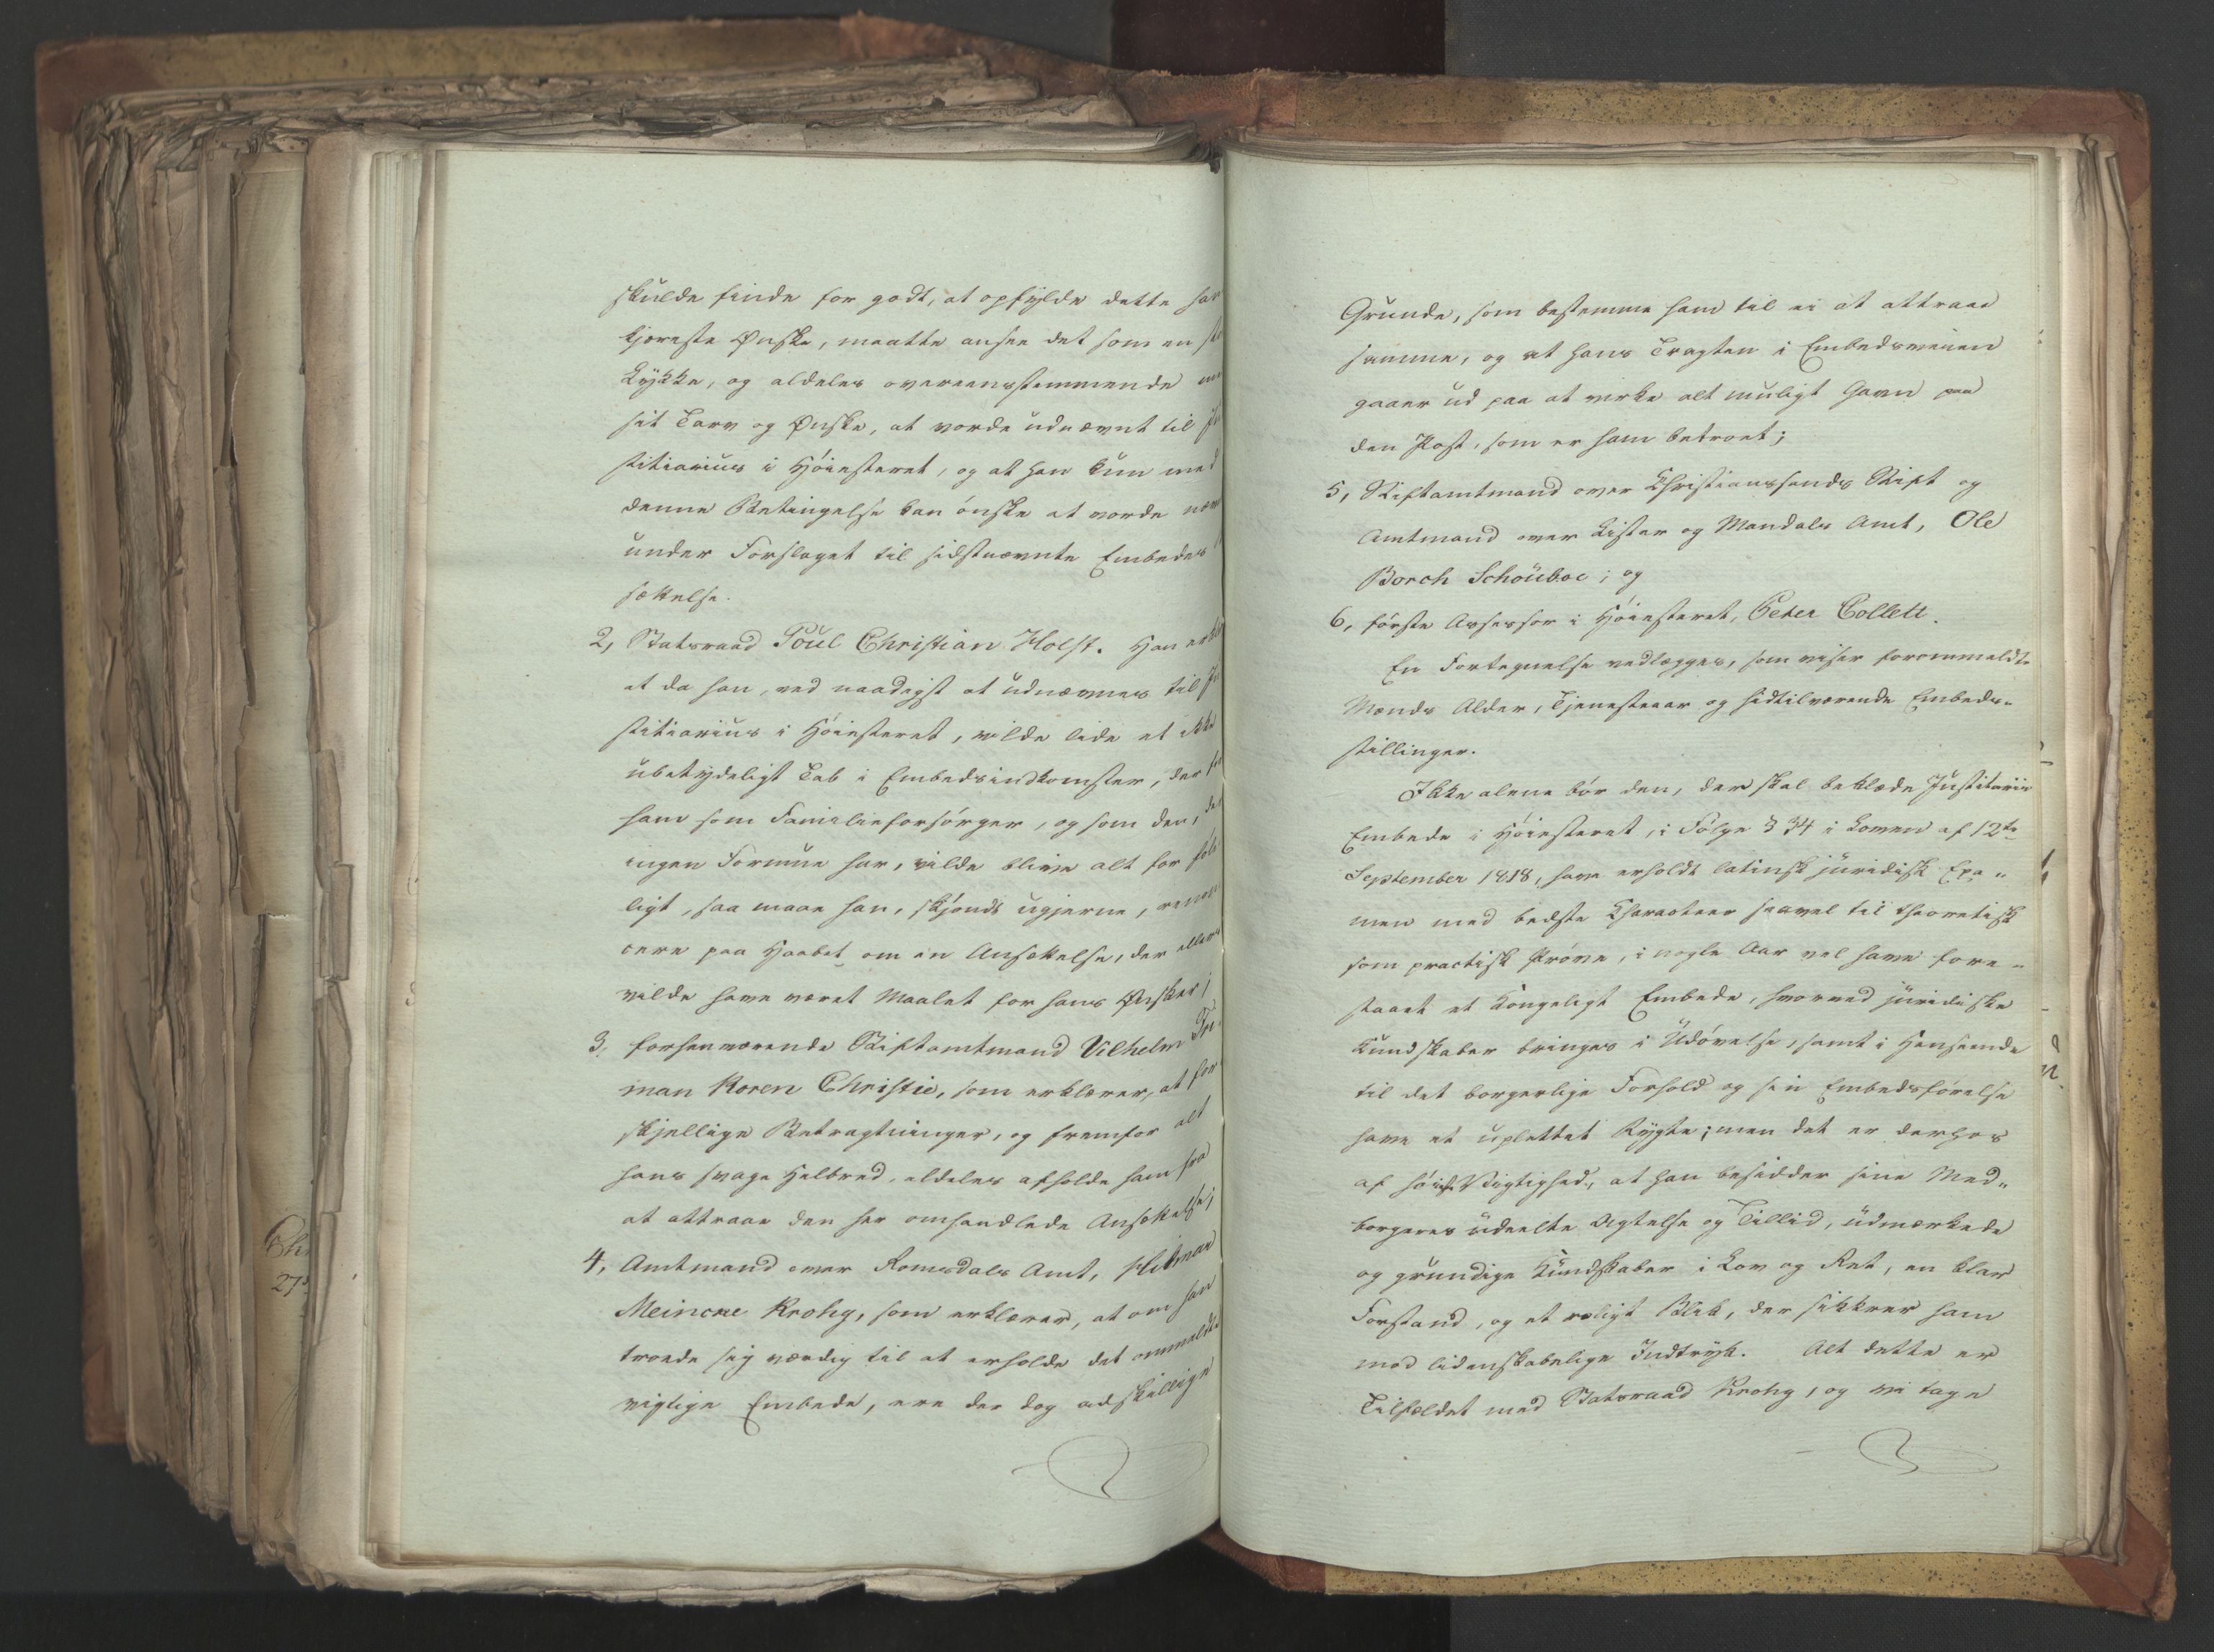 skulde finde for godt, at opfylde dette han
kjæreste Ønske, maatte ansee det som en sto
Lykke, og aldeles overeensstemmende me
sit Tarv og Ønske, at vorde udnævnt til Ju
stitiarius i Høiesteret, og at han kun med
denne Betingelse kan ønske at vorde næv
under Forslaget til sidstnævnte Embedes
sættelse.
2, Statsraad Poul Christian Holst. Han erklæ
at da han, ved naadigst at udnævnes til Ju
stitiarius i Høiesteret, vilde lide et ikke
ubetydeligt Tab i Embedsindkomster, der for
ham som Familieforsørger, og som den, der
ingen Formue har, vilde blive alt for føle
ligt, saa maae han, skjøndt ugjerne, renon
cere paa Haabet om en Ansættelse, der ellers
vilde have været Maalet for hans Ønsker;
3. forhenværende Stiftamtmand Vilhelm Fri
man Koren Christie, som erklærer, at for
skjellige Betragtninger, og fremfor alt
hans svage Helbred, aldeles afholde ham fra
at attraae den her omhandlede Ansættelse;
4, Amtmand over Romsdals Amt, Hilmar
Meincke Krohg, som erklærer, at om han
troede sig værdig til at erholde det ommeldte
vigtige Embede, ere der dog adskillige
Grunde, som bestemme ham til ei at attraae
samme, og at hans Tragten i Embedsveien
gaaer ud paa at virke alt muligt Gavn paa
den Post, som er ham betroet;
5, Stiftamtmand over Christianssands Stift og
Amtmand over Lister og Mandals Amt, Ole
Borch Schouboe; og
6, første Assessor i Høiesteret, Peter Collett.
En Fortegnelse vedlægges, som viser forommeldte
Mænds Alder, Tjenesteaar og hidtilværende Embeds„
stillinger.
Ikke alene bør den, der skal beklæde Justitiarii
Embede i Høiesteret, i Følge § 34 i Loven af 12te
September 1818, have erholdt latinsk juridisk Exa„
men med bedste Charakteer saavel til theoretisk
som practisk Prøve, i nogle Aar vel have fore„
staaet et Kongeligt Embede, hvorved juridiske
Kundskaber bringes i Udøvelse, samt i Henseende
til det borgerlige Forhold og sin Embedsførelse
have et uplettet Rygte; men det er derhos
af høieste Vigtighed, at han besidder sine Med„
borgeres udeelte Agtelse og Tillid, udmærkede
og grundige Kundskaber i Lov og Ret, en klar
Forstand, og et roligt Blik, der sikkrer ham
mod lidenskabelige Indtryk. Alt dette er
Tilfældet med Statsraad Krohg, og vi tage